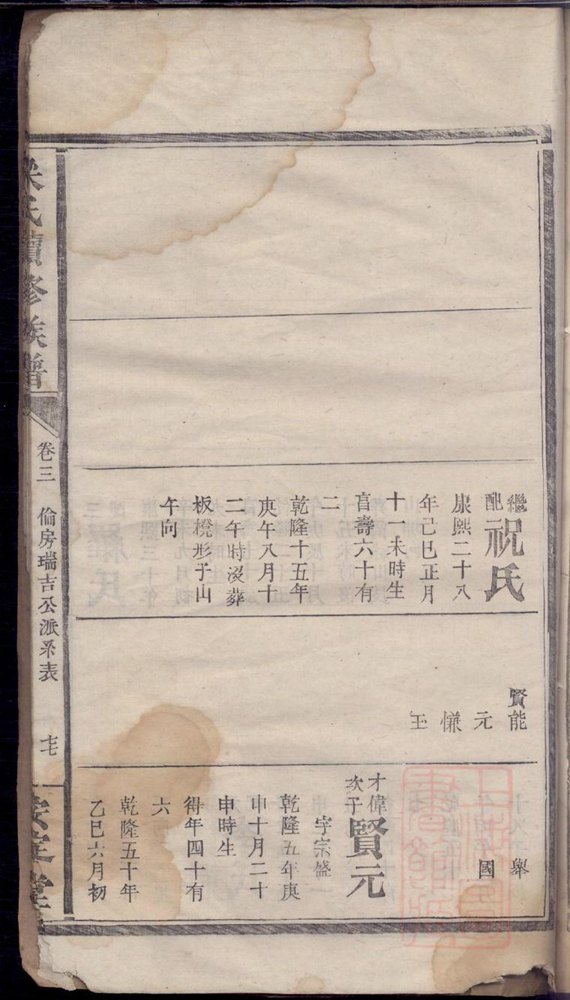 繼配祝氏
康熙二十八
年己巳正月
十一未時生
享壽六十有
二
乾隆十五年
庚午八月十
二午時沒葬
板櫈形子山
午向
賢能
元
慊
玉
舉
國
才偉次子賢元
字宗盛
乾隆五年庚
申十月二十
申時生
得年四十有
六
乾隆五十年
乙巳六月初
氏續修族譜
卷三
倫房瑞吉公派系表
七
堂